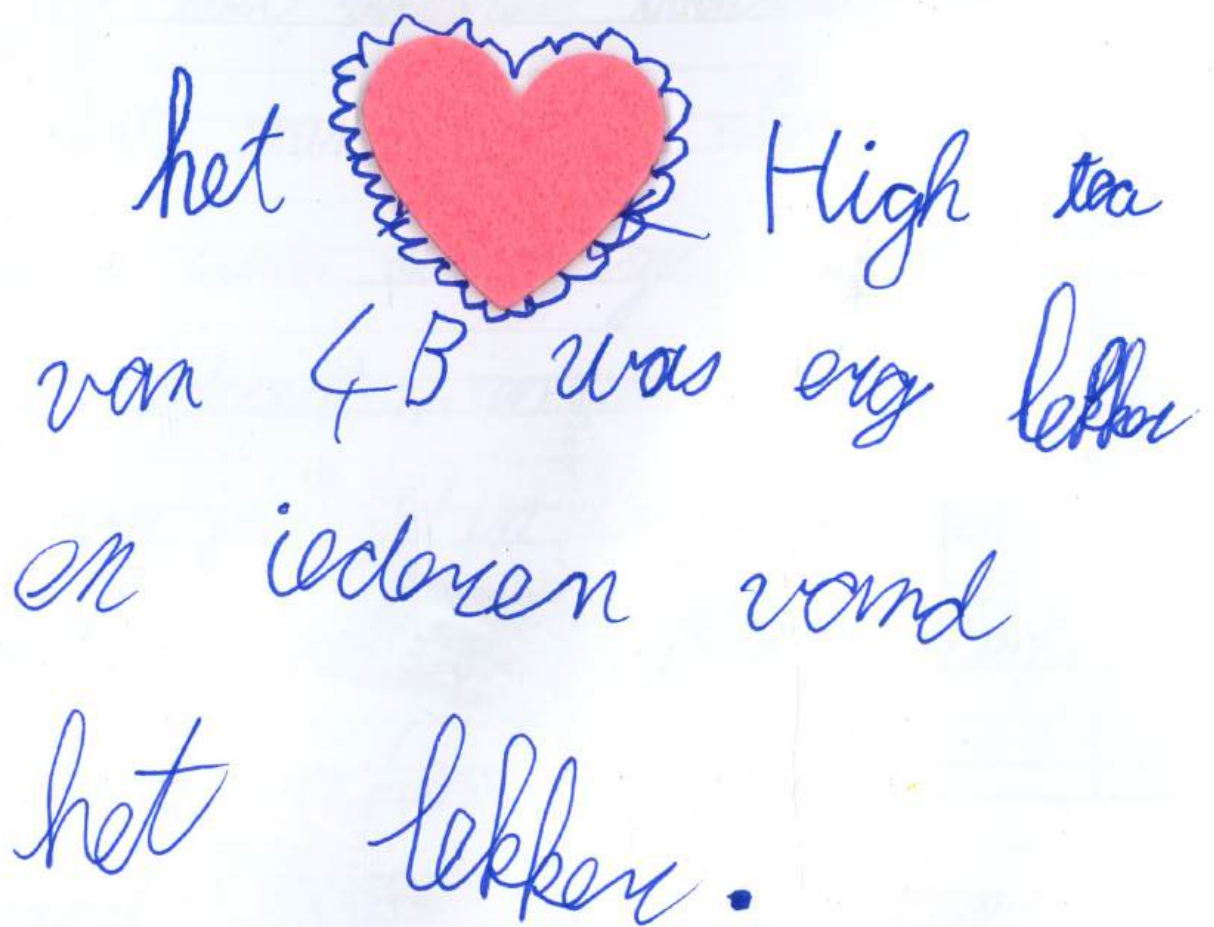 het High tea
van 4B was erg lekker
en iederen vond
het lekker.